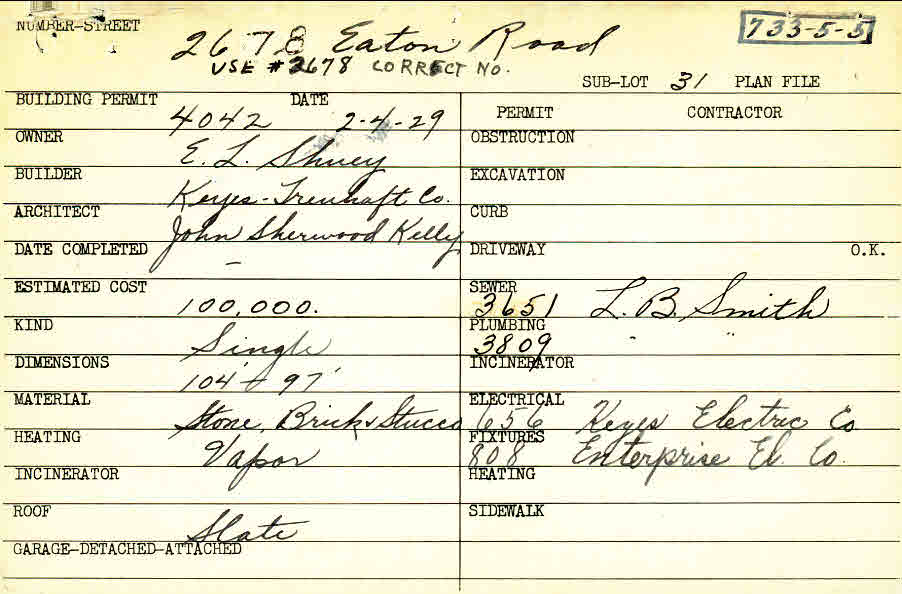 NUMBER-STREET 2678 Eaton Road 733-5-5
USE #2678 CORRECT NO.
SUB-LOT 31 PLAN FILE
BUILDING PERMIT 4042 DATE 2-4-29
PERMIT CONTRACTOR
OWNER E. L. Shuey
OBSTRUCTION
BUILDER Keyes-Treuhaft Co.
EXCAVATION
ARCHITECT John Sherwood Kelly
CURB
DATE COMPLETED –
DRIVEWAY O.K.
ESTIMATED COST 100,000.
SEWER 3651 L. B. Smith
KIND Single
PLUMBING 3809 " "
DIMENSIONS 104' + 97'
INCINERATOR
MATERIAL Stone, Brick & Stucco
ELECTRICAL 656 Keyes Electric Co
HEATING Vapor
FIXTURES 808 Enterprise El. Co.
INCINERATOR
HEATING
ROOF Slate
SIDEWALK
GARAGE-DETACHED-ATTACHED